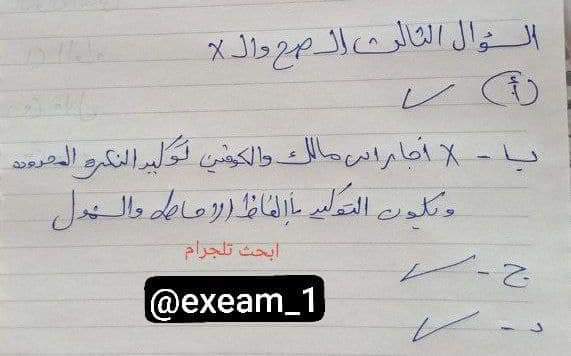 السؤال الثالث الـ صح والـ X
أ ✓
ب - X أجاز ابن مالك والكوفيين توكيد النكرة المحدودة
ويكون التوكيد بألفاظ الإحاطة والشمول
ابحث تلجرام
@exeam_1
ج - ✓
د - ✓